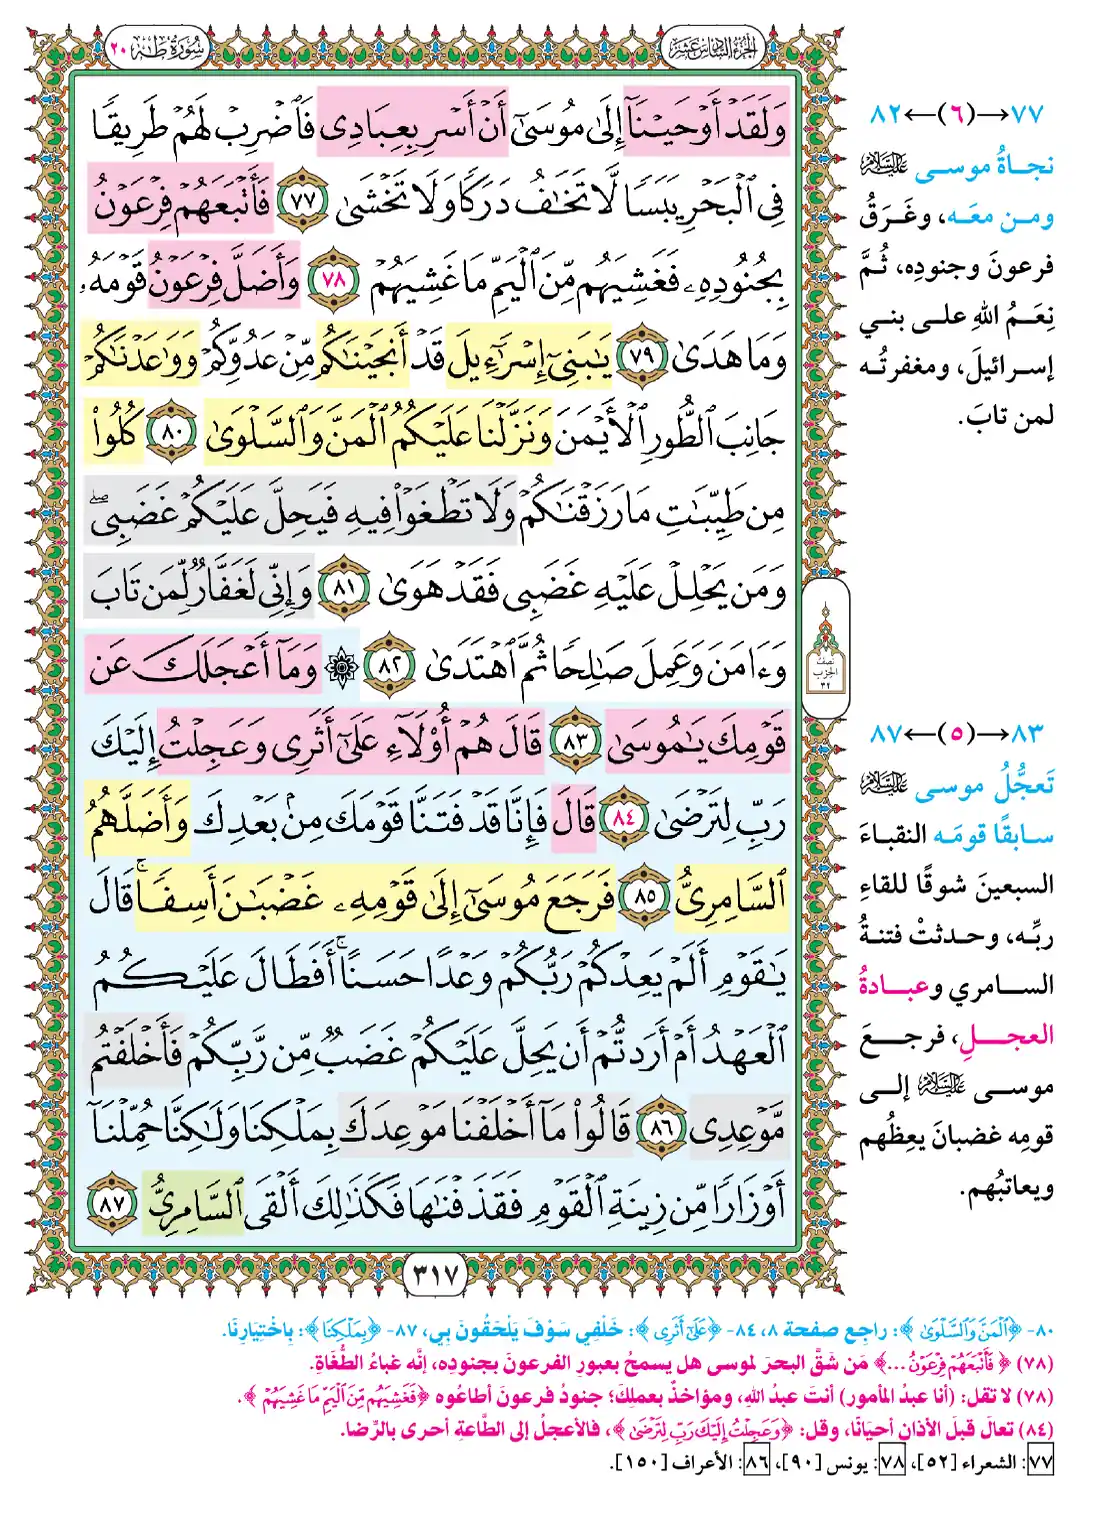 سُورَةُ طٰهٰ ٢٠
الجُزْءُ السَّادِسَ عَشَرَ
وَلَقَدْ أَوْحَيْنَآ إِلَىٰ مُوسَىٰٓ أَنْ أَسْرِ بِعِبَادِى فَٱضْرِبْ لَهُمْ طَرِيقًا
فِى ٱلْبَحْرِ يَبَسًا لَّا تَخَٰفُ دَرَكًا وَلَا تَخْشَىٰ ٧٧ فَأَتْبَعَهُمْ فِرْعَوْنُ
بِجُنُودِهِۦ فَغَشِيَهُم مِّنَ ٱلْيَمِّ مَا غَشِيَهُمْ ٧٨ وَأَضَلَّ فِرْعَوْنُ قَوْمَهُۥ
وَمَا هَدَىٰ ٧٩ يَٰبَنِىٓ إِسْرَٰٓءِيلَ قَدْ أَنجَيْنَٰكُم مِّنْ عَدُوِّكُمْ وَوَٰعَدْنَٰكُمْ
جَانِبَ ٱلطُّورِ ٱلْأَيْمَنَ وَنَزَّلْنَا عَلَيْكُمُ ٱلْمَنَّ وَٱلسَّلْوَىٰ ٨٠ كُلُوا۟
مِن طَيِّبَٰتِ مَا رَزَقْنَٰكُمْ وَلَا تَطْغَوْا۟ فِيهِ فَيَحِلَّ عَلَيْكُمْ غَضَبِى ۖ
وَمَن يَحْلِلْ عَلَيْهِ غَضَبِى فَقَدْ هَوَىٰ ٨١ وَإِنِّى لَغَفَّارٌ لِّمَن تَابَ
وَءَامَنَ وَعَمِلَ صَٰلِحًا ثُمَّ ٱهْتَدَىٰ ٨٢ ۞ وَمَآ أَعْجَلَكَ عَن
قَوْمِكَ يَٰمُوسَىٰ ٨٣ قَالَ هُمْ أُو۟لَآءِ عَلَىٰٓ أَثَرِى وَعَجِلْتُ إِلَيْكَ
رَبِّ لِتَرْضَىٰ ٨٤ قَالَ فَإِنَّا قَدْ فَتَنَّا قَوْمَكَ مِنۢ بَعْدِكَ وَأَضَلَّهُمُ
ٱلسَّامِرِىُّ ٨٥ فَرَجَعَ مُوسَىٰٓ إِلَىٰ قَوْمِهِۦ غَضْبَٰنَ أَسِفًا ۚ قَالَ
يَٰقَوْمِ أَلَمْ يَعِدْكُمْ رَبُّكُمْ وَعْدًا حَسَنًا ۚ أَفَطَالَ عَلَيْكُمُ
ٱلْعَهْدُ أَمْ أَرَدتُّمْ أَن يَحِلَّ عَلَيْكُمْ غَضَبٌ مِّن رَّبِّكُمْ فَأَخْلَفْتُم
مَّوْعِدِى ٨٦ قَالُوا۟ مَآ أَخْلَفْنَا مَوْعِدَكَ بِمَلْكِنَا وَلَٰكِنَّا حُمِّلْنَآ
أَوْزَارًا مِّن زِينَةِ ٱلْقَوْمِ فَقَذَفْنَٰهَا فَكَذَٰلِكَ أَلْقَى ٱلسَّامِرِىُّ ٨٧
٣١٧
نِصْفُ
الحِزْبِ
٣٢
٧٧→(٦)←٨٢
نجاةُ موسى عليه السلام
ومن معَه، وغَرَقُ
فرعونَ وجنودِه، ثُمَّ
نِعَمُ اللهِ على بني
إسرائيلَ، ومغفرتُه
لمن تابَ.
٨٣→(٥)←٨٧
تَعجُّلُ موسى عليه السلام
سابقًا قومَه النقباءَ
السبعينَ شوقًا للقاءِ
ربِّه، وحدثتْ فتنةُ
السامري وعبادةُ
العجلِ، فرجعَ
موسى عليه السلام إلى
قومِه غضبانَ يعِظُهم
ويعاتبُهم.
٨٠- ﴿ٱلْمَنَّ وَٱلسَّلْوَىٰ﴾: راجع صفحة ٨، ٨٤- ﴿عَلَىٰٓ أَثَرِى﴾: خَلْفِي سَوْفَ يَلْحَقُونَ بِي، ٨٧- ﴿بِمَلْكِنَا﴾: بِاخْتِيَارِنَا.
(٧٨) ﴿فَأَتْبَعَهُمْ فِرْعَوْنُ...﴾ مَن شَقَّ البحرَ لموسى هل يسمحُ بعبورِ الفرعونَ بجنودِه، إنَّه غباءُ الطُّغاةِ.
(٧٨) لا تقل: (أنا عبدُ المأمور) أنتَ عبدُ اللهِ، ومؤاخذٌ بعملِكَ؛ جنودُ فرعونَ أطاعُوه ﴿فَغَشِيَهُم مِّنَ ٱلْيَمِّ مَا غَشِيَهُمْ﴾.
(٨٤) تعالَ قبلَ الأذانِ أحيَانًا، وقل: ﴿وَعَجِلْتُ إِلَيْكَ رَبِّ لِتَرْضَىٰ﴾، فالأعجلُ إلى الطَّاعةِ أحرى بالرِّضا.
٧٧: الشعراء [٥٢]، ٧٨: يونس [٩٠]، ٨٦: الأعراف [١٥٠].